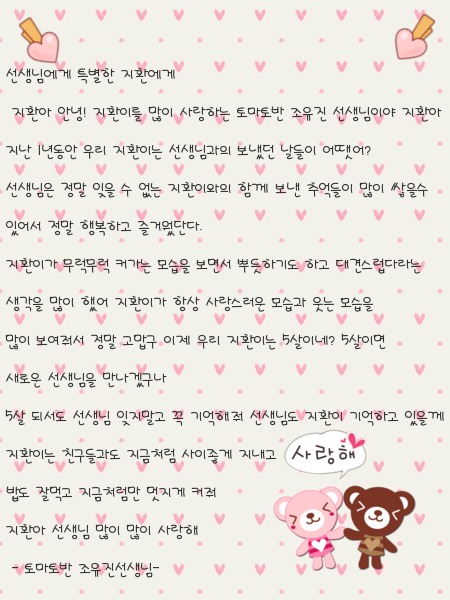 선생님에게 특별한 지환에게
지환아 안녕! 지환이를 많이 사랑하는 토마토반 조유진 선생님이야 지환아
지난 1년동안 우리 지환이는 선생님과의 보냈던 날들이 어땠어?
선생님은 정말 잊을 수 없는 지환이와의 함께 보낸 추억들이 많이 쌓을수
있어서 정말 행복하고 즐거웠단다.
지환이가 무럭무럭 커가는 모습을 보면서 뿌듯하기도 하고 대견스럽다라는
생각을 많이 했어 지환이가 항상 사랑스러운 모습과 웃는 모습을
많이 보여줘서 정말 고맙구 이제 우리 지환이는 5살이네? 5살이면
새로운 선생님을 만나겠구나
5살 되서도 선생님 잊지말고 꼭 기억해줘 선생님도 지환이 기억하고 있을게
지환이는 친구들과도 지금처럼 사이좋게 지내고
사랑해
밥도 잘먹고 지금처럼만 멋지게 커줘
지환아 선생님 많이 많이 사랑해
- 토마토반 조유진선생님-